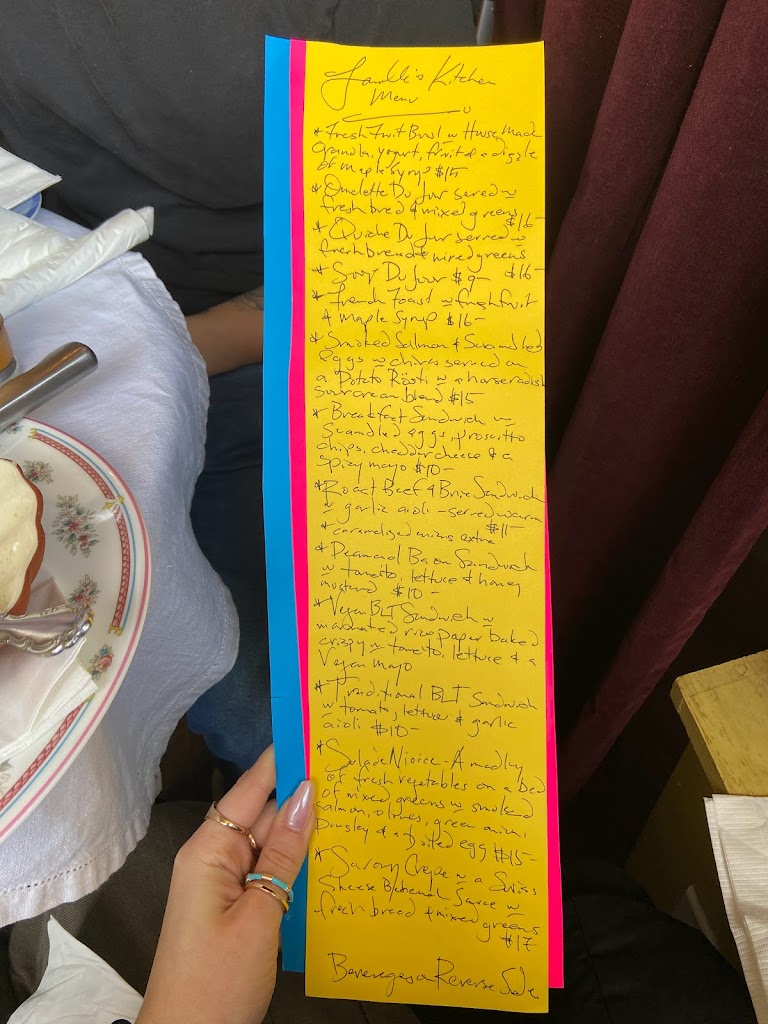 Kitchen
Menu
* Fresh Fruit Bowl w House Made
Granola, yogurt, fruit & a drizzle
of Maple Syrup $15
* Omelette Du Jour served w
fresh bread & mixed greens
$16-
* Quiche Du Jour served w
fresh bread & mixed greens
$16-
* Soup Du Jour $9-
* French Toast w fresh fruit
& Maple Syrup $16-
* Smoked Salmon & Scrambled
eggs w chives served on
a Potato Rösti w a horseradish
sour cream blend $15
* Breakfast Sandwich w
Scrambled eggs, prosciutto
chips, cheddar cheese & a
spicy mayo $10-
* Roast Beef & Brie Sandwich
w garlic aioli - served warm
$11-
* caramelized onions extra
* Peameal Bacon Sandwich
w tomato, lettuce & honey
mustard $10-
* Vegan BLT Sandwich w
marinated rice paper baked
crispy w tomato, lettuce & a
Vegan mayo
* Traditional BLT Sandwich
w tomato, lettuce & garlic
aioli $10-
* Salade Nicoise - A medley
of fresh vegetables on a bed
of mixed greens w smoked
salmon, olives, green onion,
Parsley & a Boiled egg $15-
* Savory Crepe w a Swiss
Cheese Bechamel Sauce w
fresh bread & mixed greens
$17
Beverages on Reverse Side